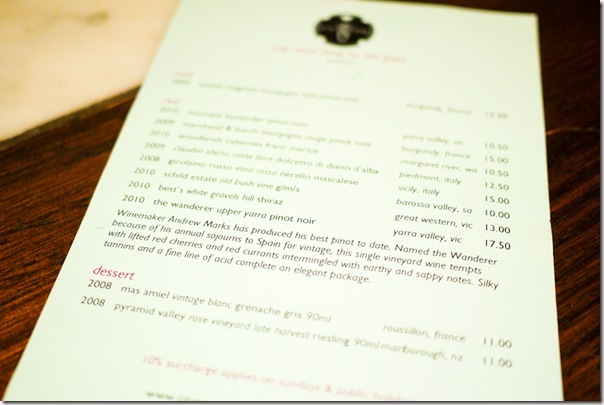 wine shop by the glass
2009 bourgogne pinot noir burgundy, france
red
2010 innocent bystander pinot noir yarra valley, vic 10.50
2009 marchand & burch bourgogne rouge pinot noir burgundy, france 15.00
2010 woodlands cabernet franc merlot margaret river, wa 10.50
2009 claudio alario costa fiore dolcetto di diano d'alba piedmont, italy 12.50
2008 girolamo russo etna rosso nerello mascalese sicily, italy 15.00
2010 schild estate old bush vine g/m/s barossa valley, sa 10.00
2010 best's white gravels hill shiraz great western, vic 13.00
2010 the wanderer upper yarra pinot noir yarra valley, vic 17.50
Winemaker Andrew Marks has produced his best pinot to date. Named the Wanderer
because of his annual sojourns to Spain for vintage, this single vineyard wine tempts
with lifted red cherries and red currants intermingled with earthy and sappy notes. Silky
tannins and a fine line of acid complete an elegant package.
dessert
2008 mas amiel vintage blanc grenache gris 90ml roussillon, france 11.00
2008 pyramid valley rose vineyard late harvest riesling 90ml marlborough, nz 11.00
10% surcharge applies on sundays & public holidays